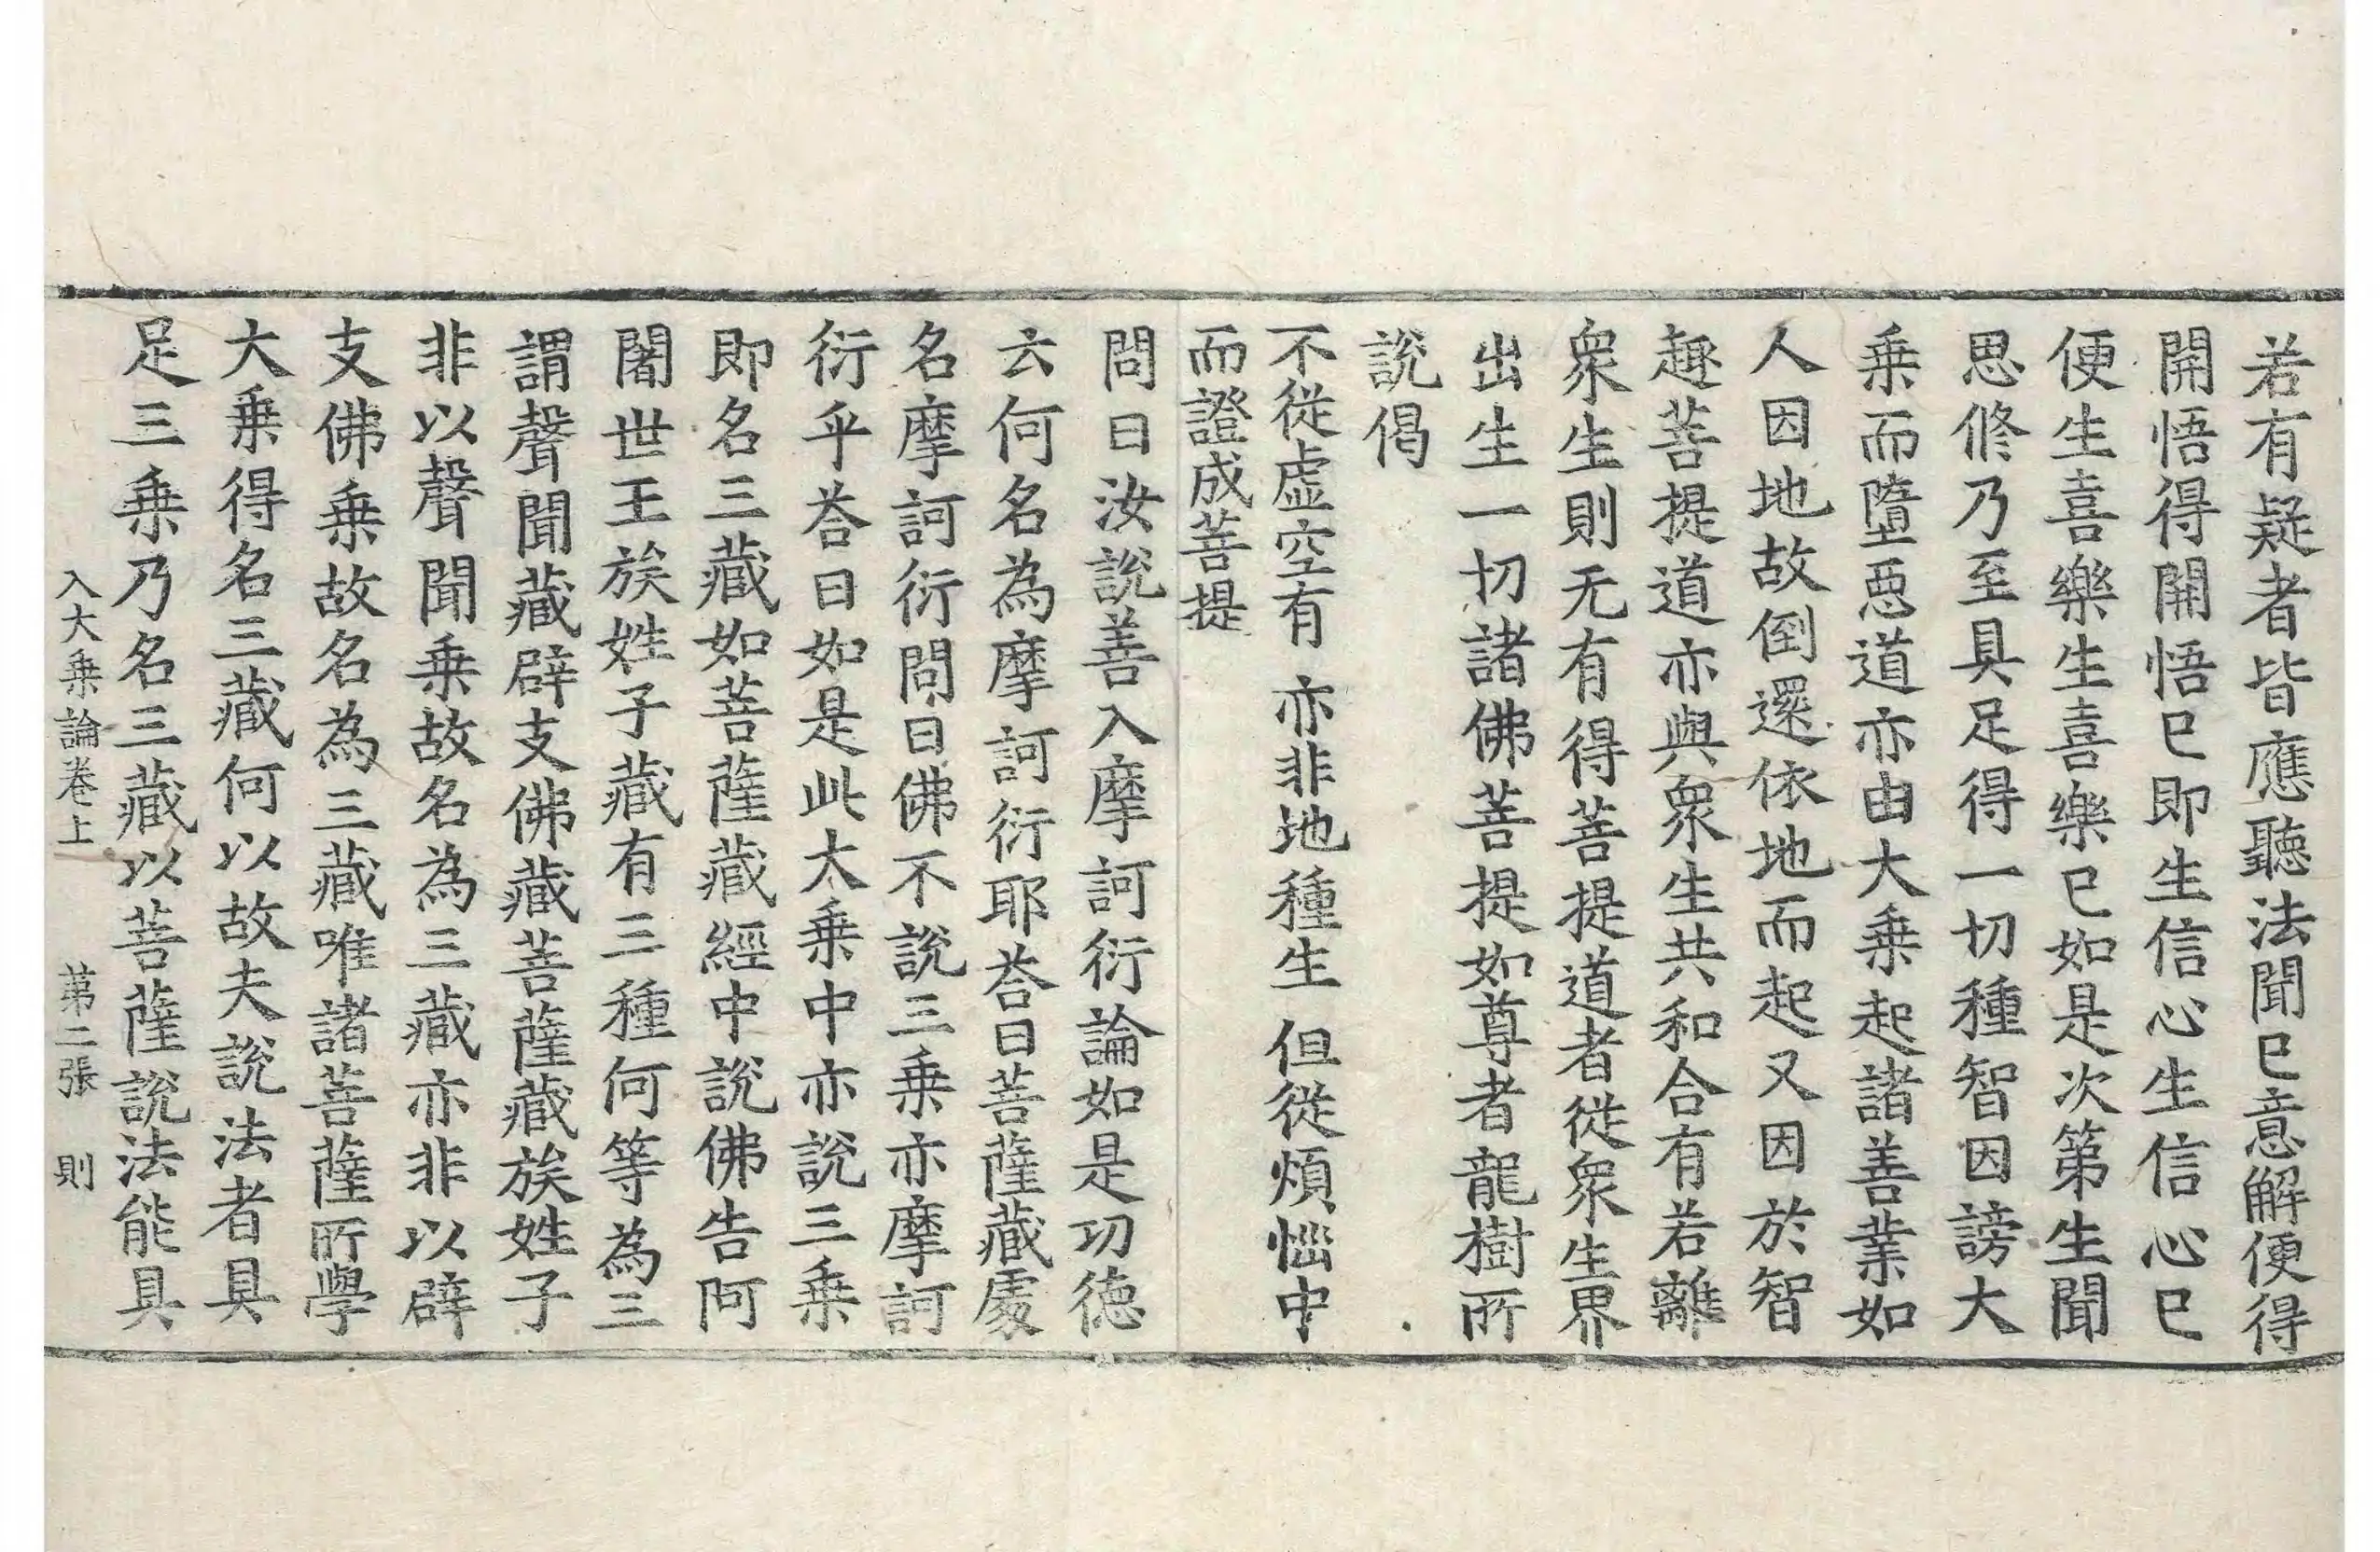 若有疑者皆應聽法聞已意解便得
開悟得開悟已即生信心生信心已
便生喜樂生喜樂已如是次第生聞
思修乃至具足得一切種智因謗大
乗而墮惡道亦由大乗起諸善業如
人因地故倒還依地而起又因於智
趣菩提道亦與衆生共和合有若離
衆生則无有得菩提道者從衆生界
出生一切諸佛菩提如尊者龍樹所
說偈
不從虛空有 亦非地種生 但從煩惱中
而證成菩提
問曰汝說善入摩訶衍論如是功德
云何名為摩訶衍耶荅曰菩薩藏處
名摩訶衍問曰佛不說三乗亦摩訶
衍乎荅曰如是此大乗中亦說三乗
即名三藏如菩薩藏經中說佛告阿
闍世王族姓子藏有三種何等為三
謂聲聞藏辟支佛藏菩薩藏族姓子
非以聲聞乗故名為三藏亦非以辟
支佛乗故名為三藏唯諸菩薩所學
大乗得名三藏何以故夫說法者具
足三乗乃名三藏以菩薩說法能具
入大乗論卷上 第二張 則